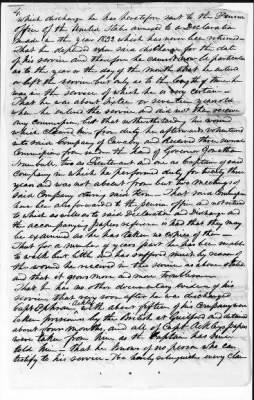 4
Which discharge he has heretofore sent to the Pension
Office of the United States annexed to a Declaration
made in the year 1832 and which has never been returned—
That he depended upon said discharge for the date
of his service and therefore he cannot now be particular
as to the year or the day of the month that he entered
or left the service but only as to the length of time he
was in the service of which he is very certain—
That he was about sixteen or seventeen years old
when he entered the service and did not then receive
any Commission, but that notwithstanding his wound
which excused him from duty he afterwards volunteered
into said company of Cavalry and Received three several
Commissions from under the hand of Governor Jonathan
Trumbull two as Lieutenant and one as Captain of said
Company in which he performed duty for twenty three
years and was not absent from but two meetings of
Said Company
has been also forwarded to the pension office and not returned
to which as well as to said Declaration and Discharge and
the accompanying papers reference is had that they may
be examined as he has taken no copies of the
That for a number of years past he has been unable
to walk but little and has suffered much by reason of
the wound he received in the service as above stated
and that it grows more and more troublesome
That he has no other documentary evidence of his
service, that very soon after he was discharged
Capt Ephraim Ackley with about fifteen of his company were
taken prisoners by the British at Guilford and detained
about four months, and all of Capt Ackleys papers
were taken from him as the Captain has since
told him— That he knows of no person who can
testify to his service— He hereby relinquishes every claim